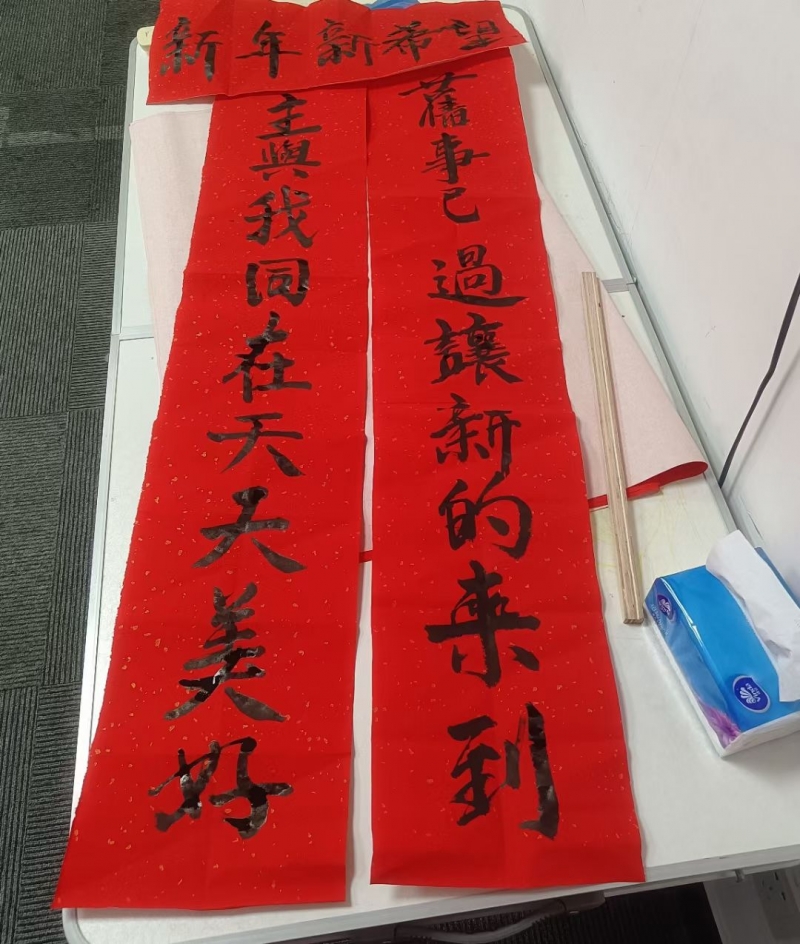 新年新希望
舊事已過讓新的来到
主與我同在天天美好
Vinda